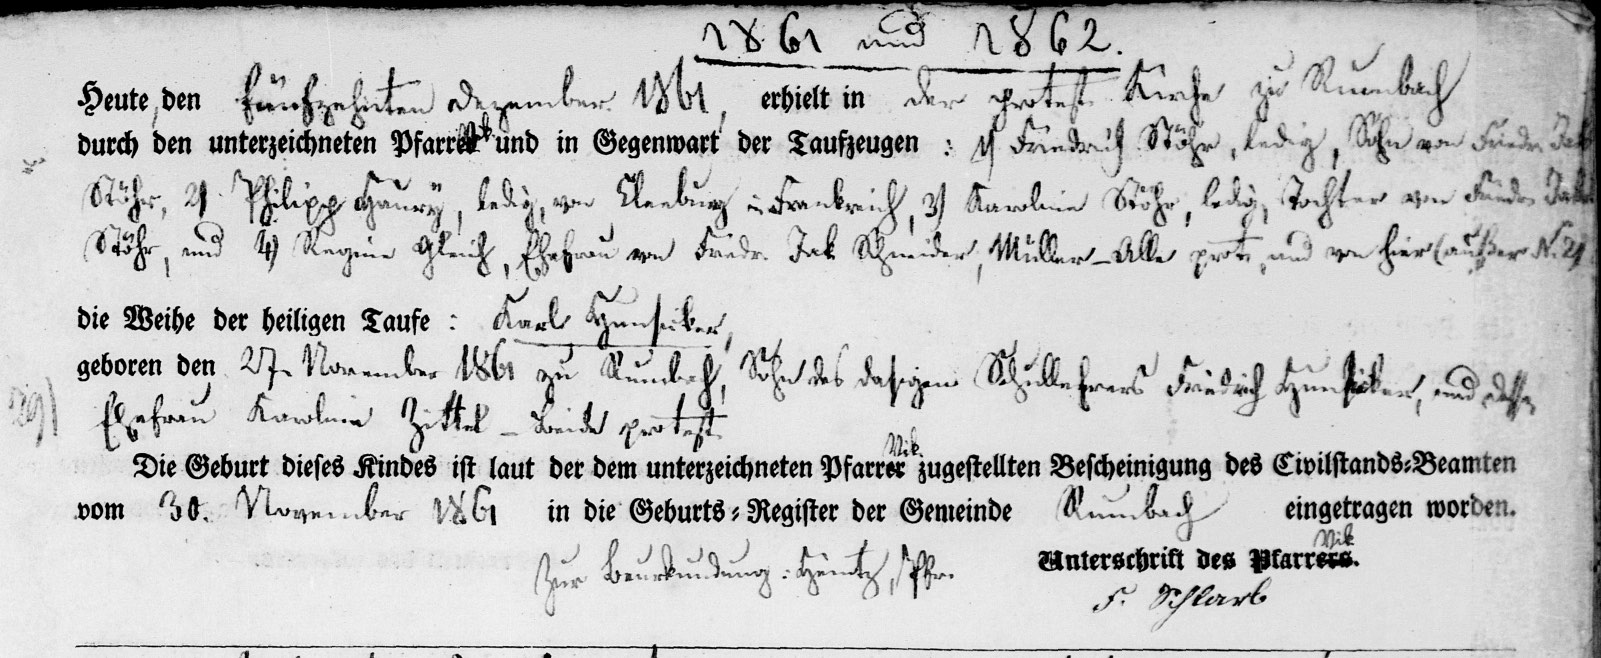 1861 und 1862.
Heute, den fünfzehnten Dezember 1861, erhielt in der protest. Kirche zu Rumbach
durch den unterzeichneten Pfarrer Vik. und in Gegenwart der Taufzeugen : 1) Friedrich Stöhr, ledig, Sohn von Friedr. Jak.
Stöhr, 2) Philipp Haury, ledig, von Cleeburg in Frankreich, 3) Karoline Stöhr, ledig, Tochter von Friedr. Jak.
Stöhr, und 4) Regine Gleich, Ehefrau von Friedr. Jak Schneider, Müller – Alle prot., und von hier (außer N. 2)
die Weihe der heiligen Taufe : Karl Hunsicker,
geboren den 27. November 1861 zu Rumbach, Sohn des dasigen Schullehrers Friedrich Hunsicker, und dessen
29)
Ehefrau Karoline Zittel – Beide protest.
Die Geburt dieses Kindes ist laut der dem unterzeichneten Pfarrer Vik. zugestellten Bescheinigung des Civilstands=Beamten
vom 30. November 1861 in die Geburts=Register der Gemeinde Rumbach eingetragen worden.
Zur Beurkundung: Heintz, Pfr.
Unterschrift des Pfarrers. Vik
F. Schlarb